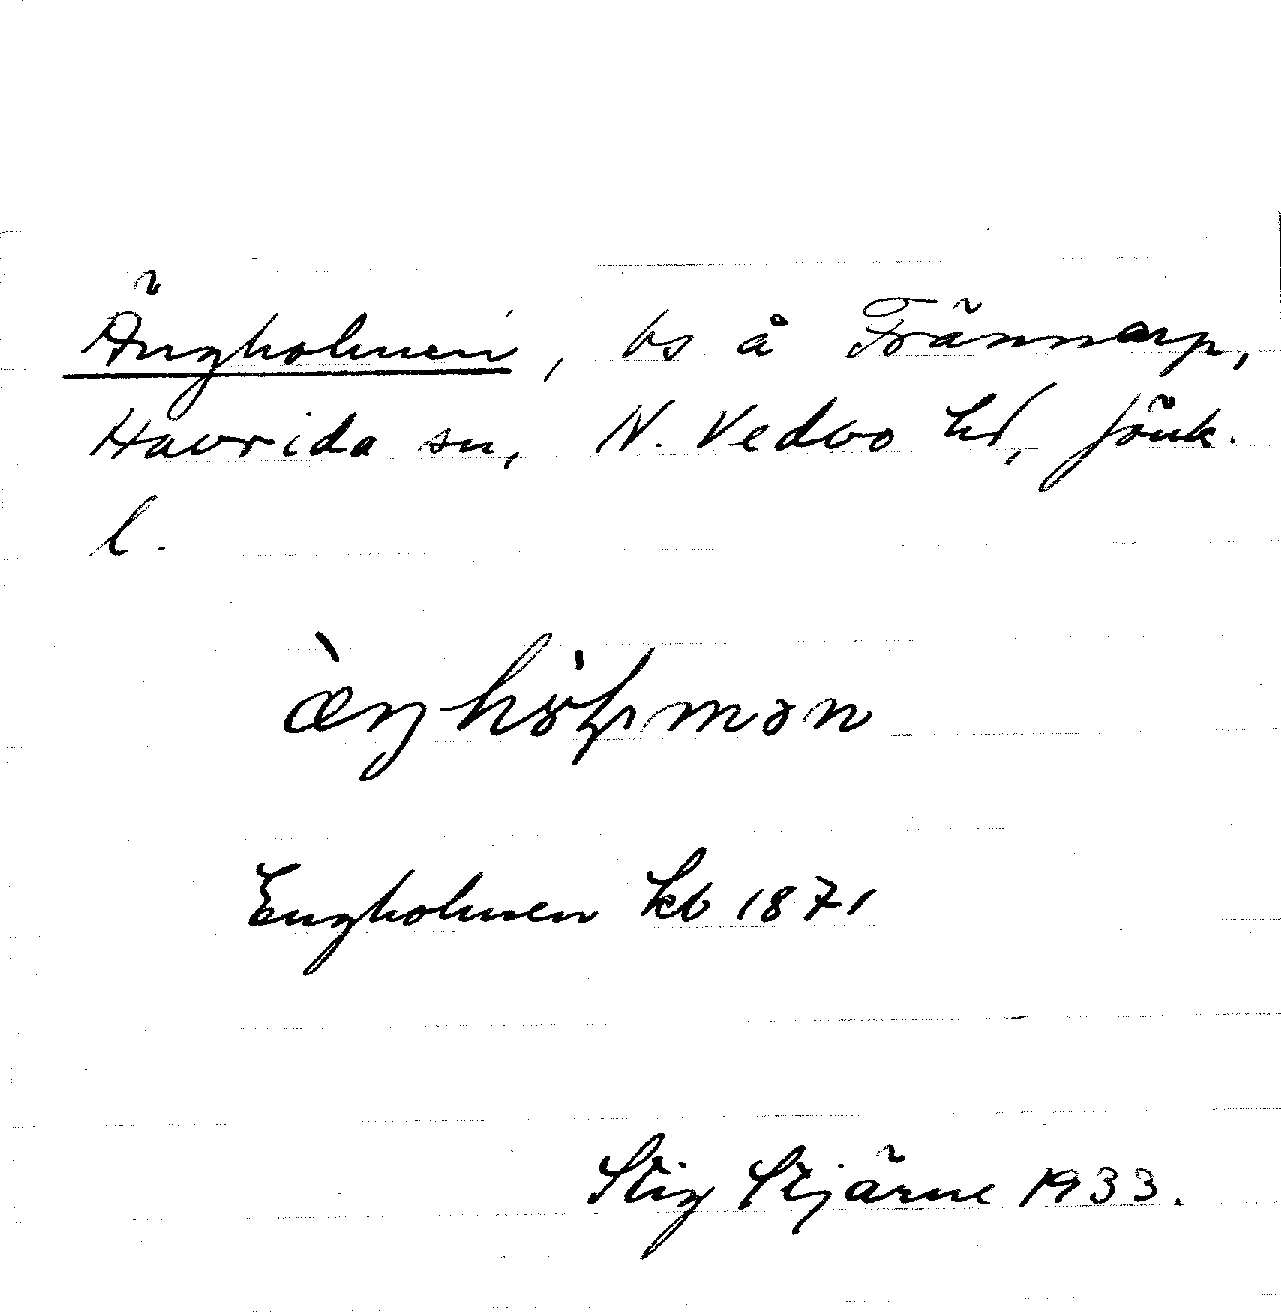 Ängholmen, bs å Trännarp,
Haurida sn, N. Vedbo hd, Jönk.
l.
Engholmen kb 1871
Stig Stjärne 1933.